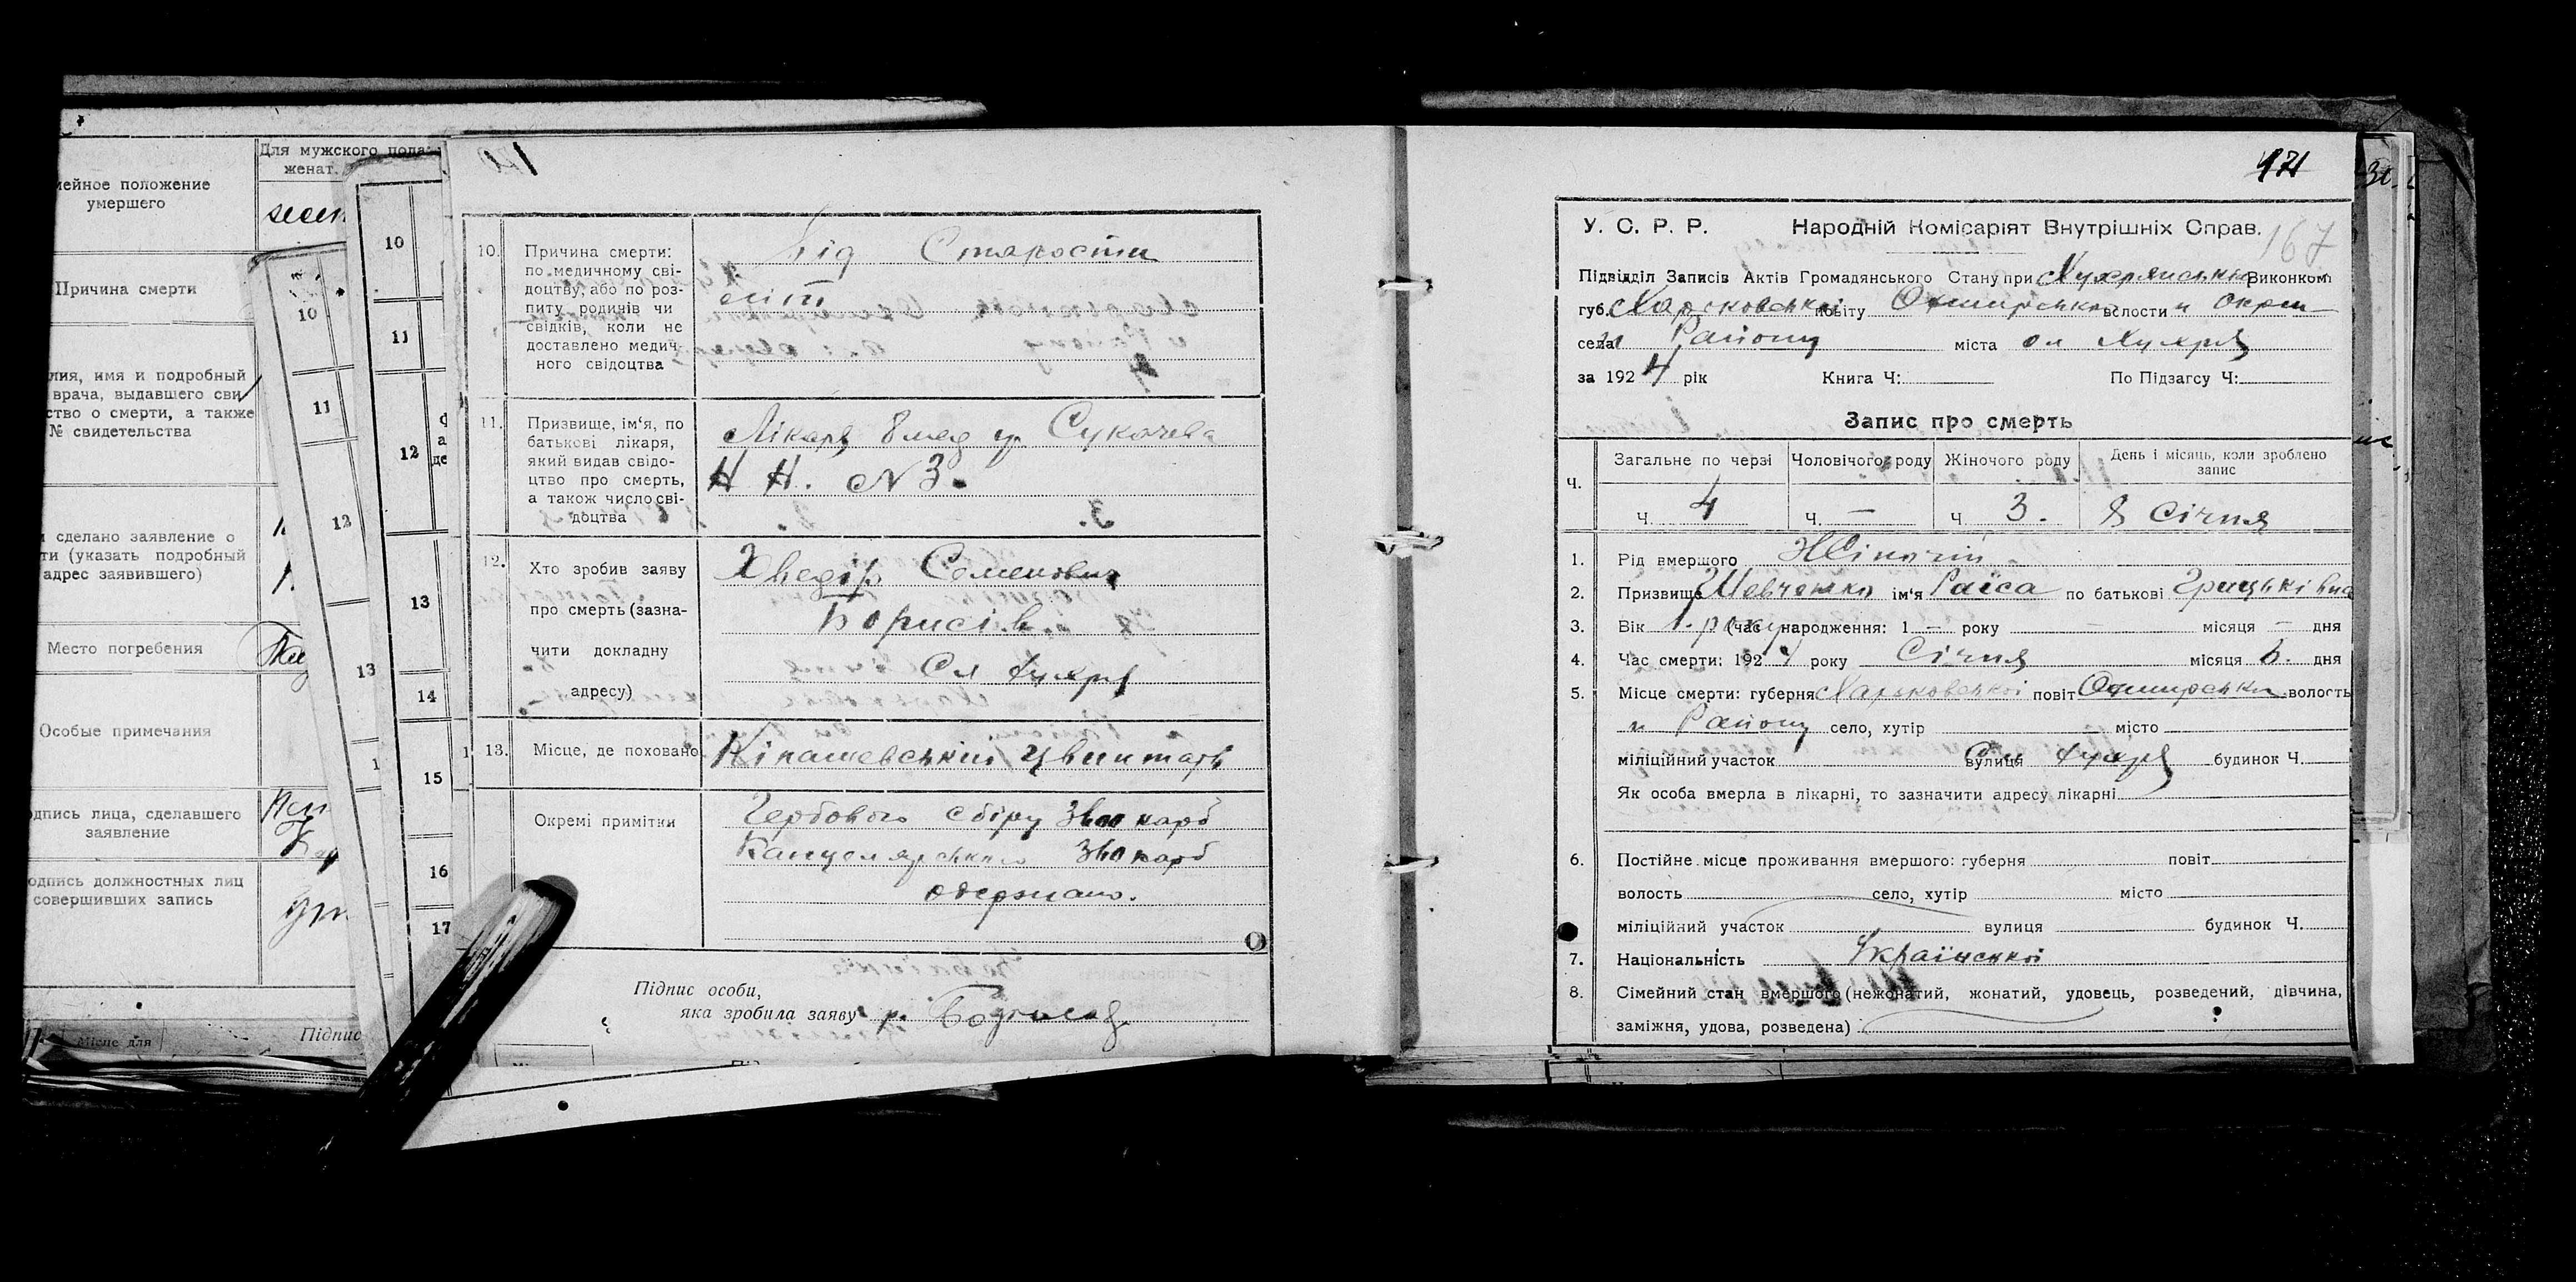 Для мужского пола:
женат.
мейное положение
умершего
Причина смерти
лия, имя и подробный
врача, выдавшего сви-
ство о смерти, а также
№ свидетельства
сделано заявление о
ти (указать подробный
адрес заявившего)
Место погребения
Особые примечания
дпись лица, сделавшего
заявление
одпись должностных лиц
совершивших запись
Місце для
Підпис
10
11
12
13
1
10
11
12
13
14
15
16
17
10. Причина смерти:
по медичному сві-
доцтву, або по роз-
питу родичів чи
свідків, коли не
доставлено медич-
ного свідоцтва
Від Старости
літ
11. Призвище, ім'я, по
батькові лікаря,
який видав свідо-
цтво про смерть,
а також число сві-
доцтва
Лікаря 8 мед Сукачева
Н Н. № 3.
12. Хто зробив заяву
про смерть (зазна-
чити докладну
адресу)
Хведір Семенович
Борисів
Сл Хухря
13. Місце, де поховано
Кіпашевський Цвинтарь
Окремі примітки
Гербового сбіру карб
Канцелярського карб
одержано.
Підпис особи,
яка зробила заяву
171
167
У. С. Р. Р. Народній Комісаріят Внутрішніх Справ.
Підвідділ Записів Актів Громадянського Стану при Хухрянськім Виконком
губ. Харьковської повіту Охтирської волости и округи
села Району міста сл Хухря
за 1924 рік Книга Ч: По Підзагсу Ч:
Запис про смерть
Ч. Загальне по черзі Чоловічого роду Жіночого роду День і місяць, коли зроблено запис
Ч. 4 Ч. — Ч. 3. 8 Січня
1. Рід вмершого Жіночій
2. Призвище Шевченко ім'я Раїса по батькові Грицьківна
3. Вік 1. року (час народження: 1 — року — місяця — дня
4. Час смерти: 1924 року Січня місяця 6. дня
5. Місце смерти: губерня Харьковської повіт Охтирської волость
и Району село, хутір — місто
міліційний участок вулиця Сл Хухря будинок Ч.
Як особа вмерла в лікарні, то зазначити адресу лікарні
6. Постійне місце проживання вмершого: губерня повіт
волость село, хутір місто
міліційний участок вулиця будинок Ч.
7. Національність Української
8. Сімейний стан вмершого (нежонатий, жонатий, удовець, розведений, дівчина,
заміжня, удова, розведена)